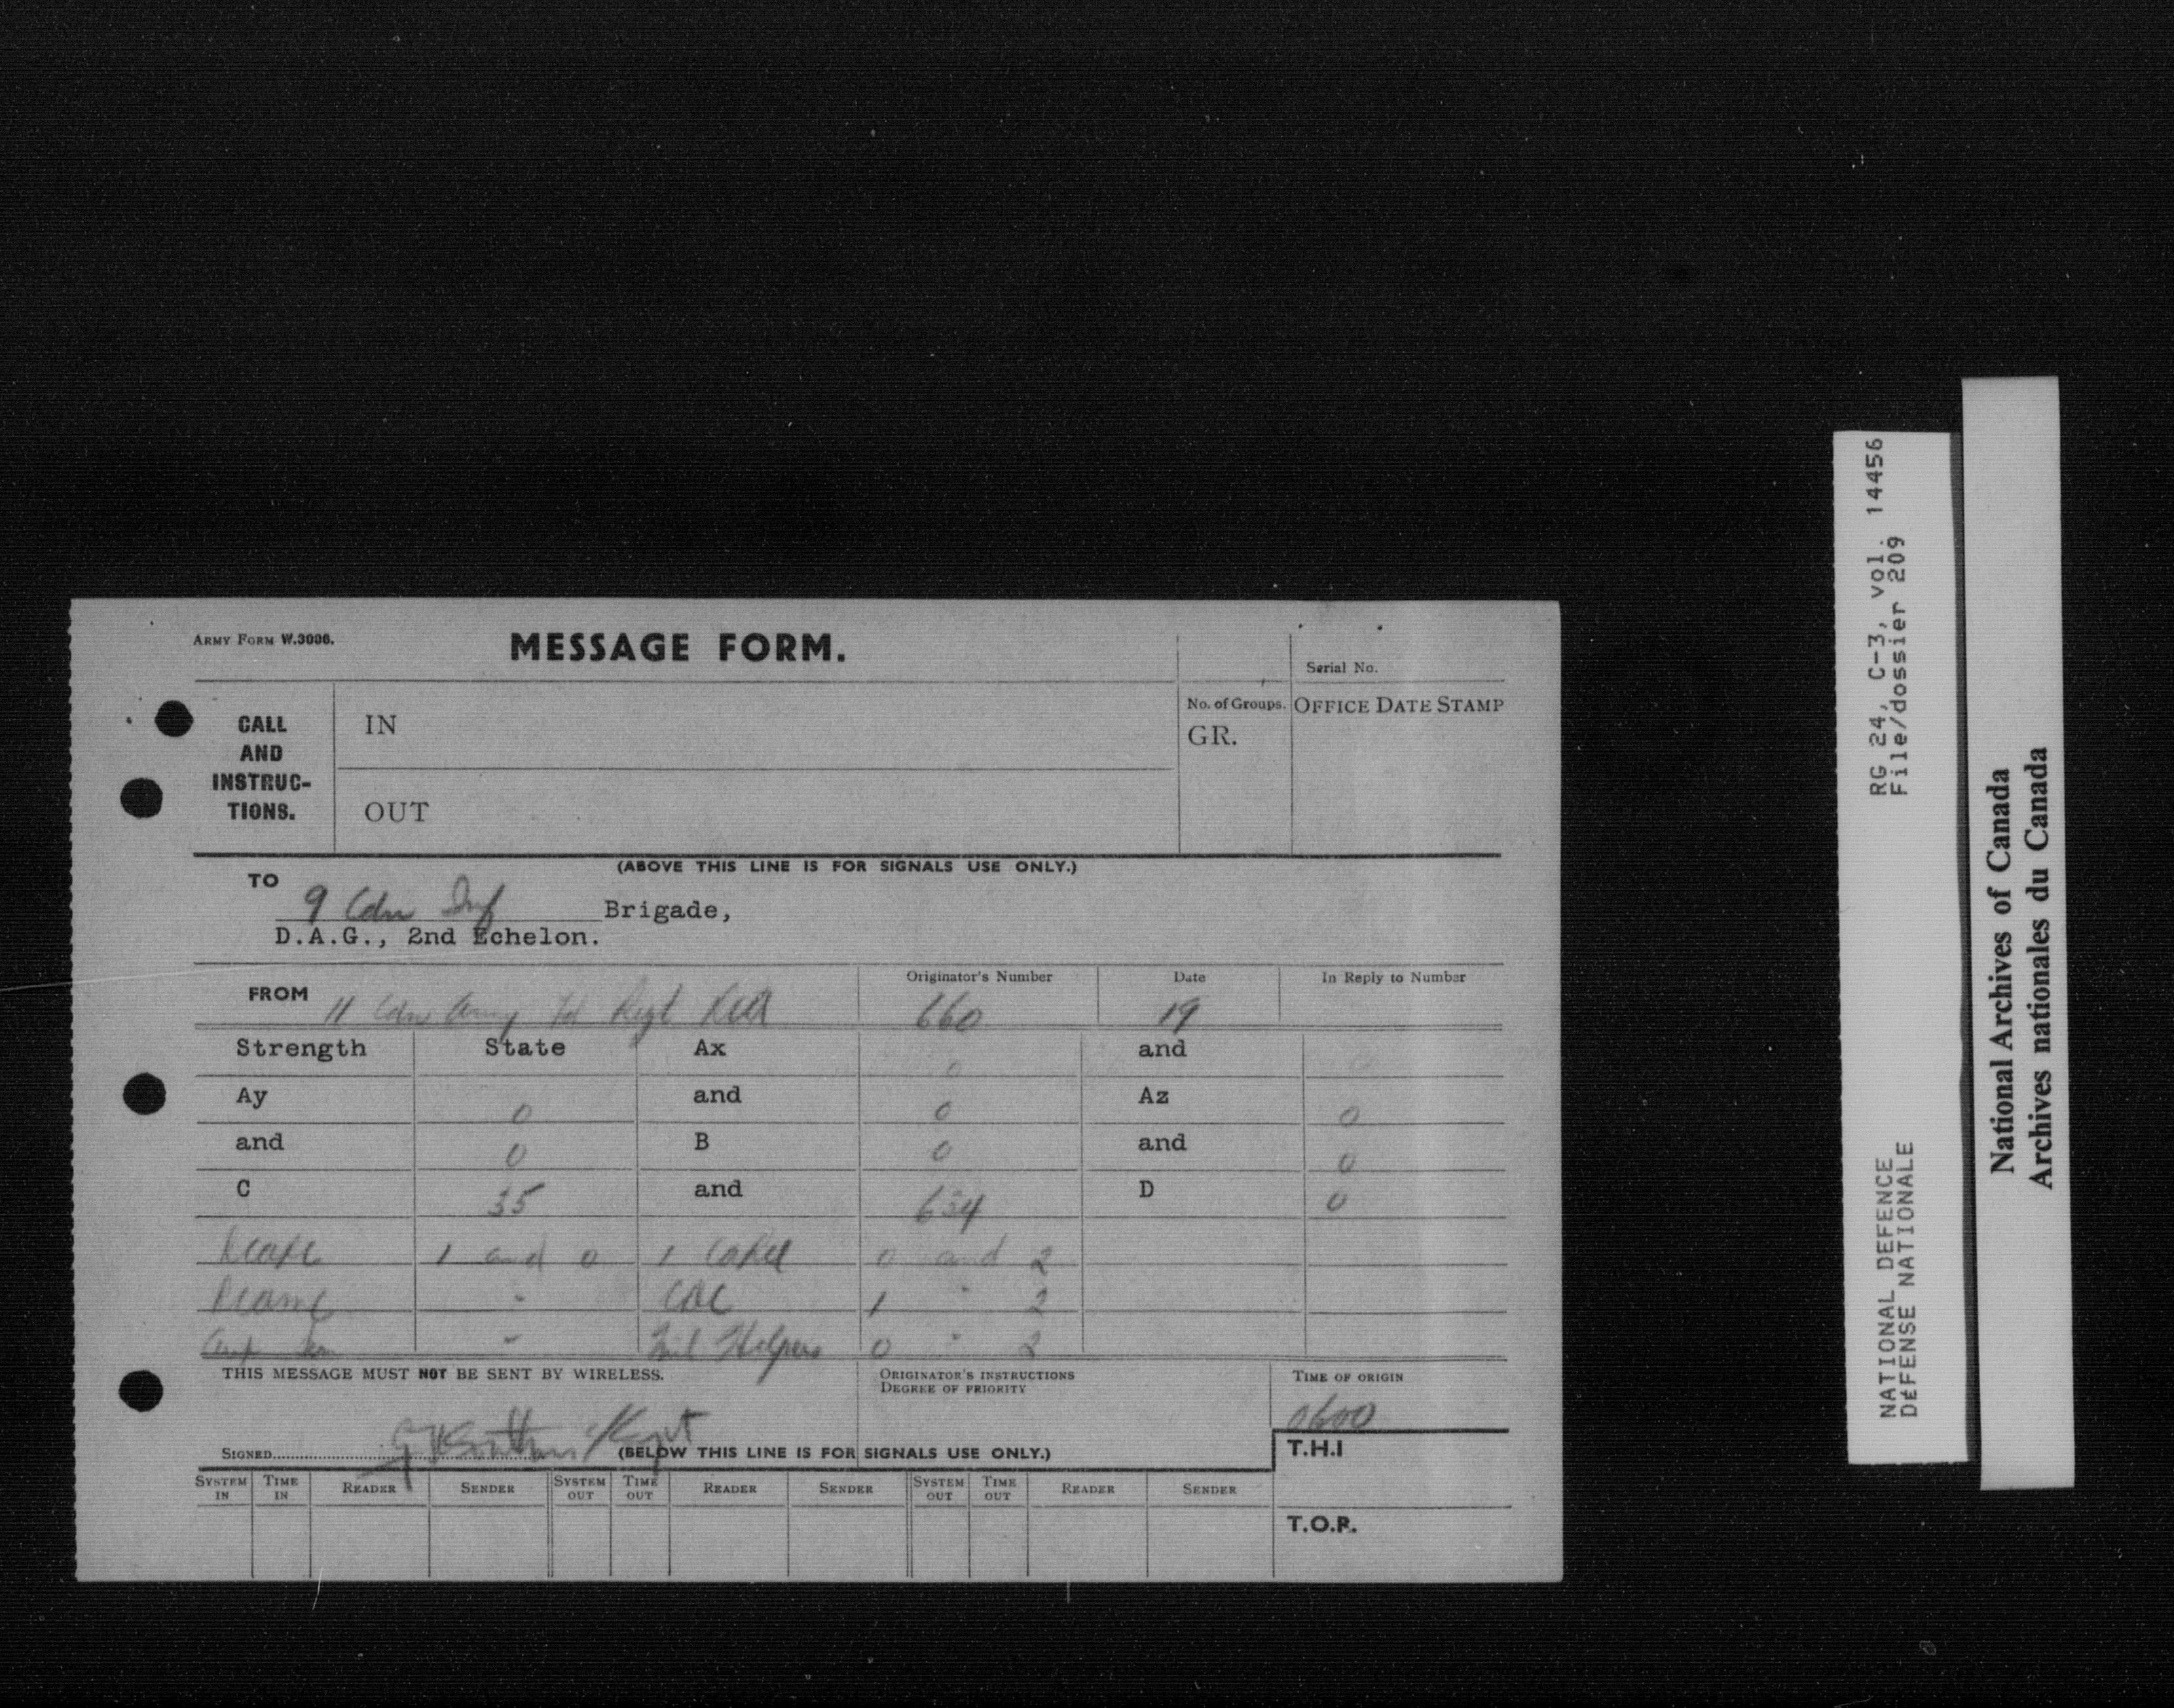 ARMY FORM W.3006.
MESSAGE FORM.
Serial No.
CALL AND INSTRUC- TIONS.
IN
OUT
No. of Groups.
GR.
OFFICE DATE STAMP
(ABOVE THIS LINE IS FOR SIGNALS USE ONLY.)
TO
9 Cdn Inf Brigade,
D.A.G., 2nd Echelon.
FROM 11 Cdn Army Fd Regt RCA
Originator's Number 660
Date 19
In Reply to Number
Strength State Ax 0 and
Ay 0 and 0 Az 0
and 0 B 0 and 0
C 35 and 634 D 0
1 and 0 0 and 2
" CDC 1 " 2
" Helpers 0 " 2
THIS MESSAGE MUST NOT BE SENT BY WIRELESS.
ORIGINATOR'S INSTRUCTIONS
DEGREE OF PRIORITY
TIME OF ORIGIN
0600
SIGNED
(BELOW THIS LINE IS FOR SIGNALS USE ONLY.)
T.H.I
SYSTEM IN TIME IN READER SENDER SYSTEM OUT TIME OUT READER SENDER SYSTEM OUT TIME OUT READER SENDER
T.O.R.
RG 24, C-3, vol. 14456
File/dossier 209
NATIONAL DEFENCE
DÉFENSE NATIONALE
National Archives of Canada
Archives nationales du Canada